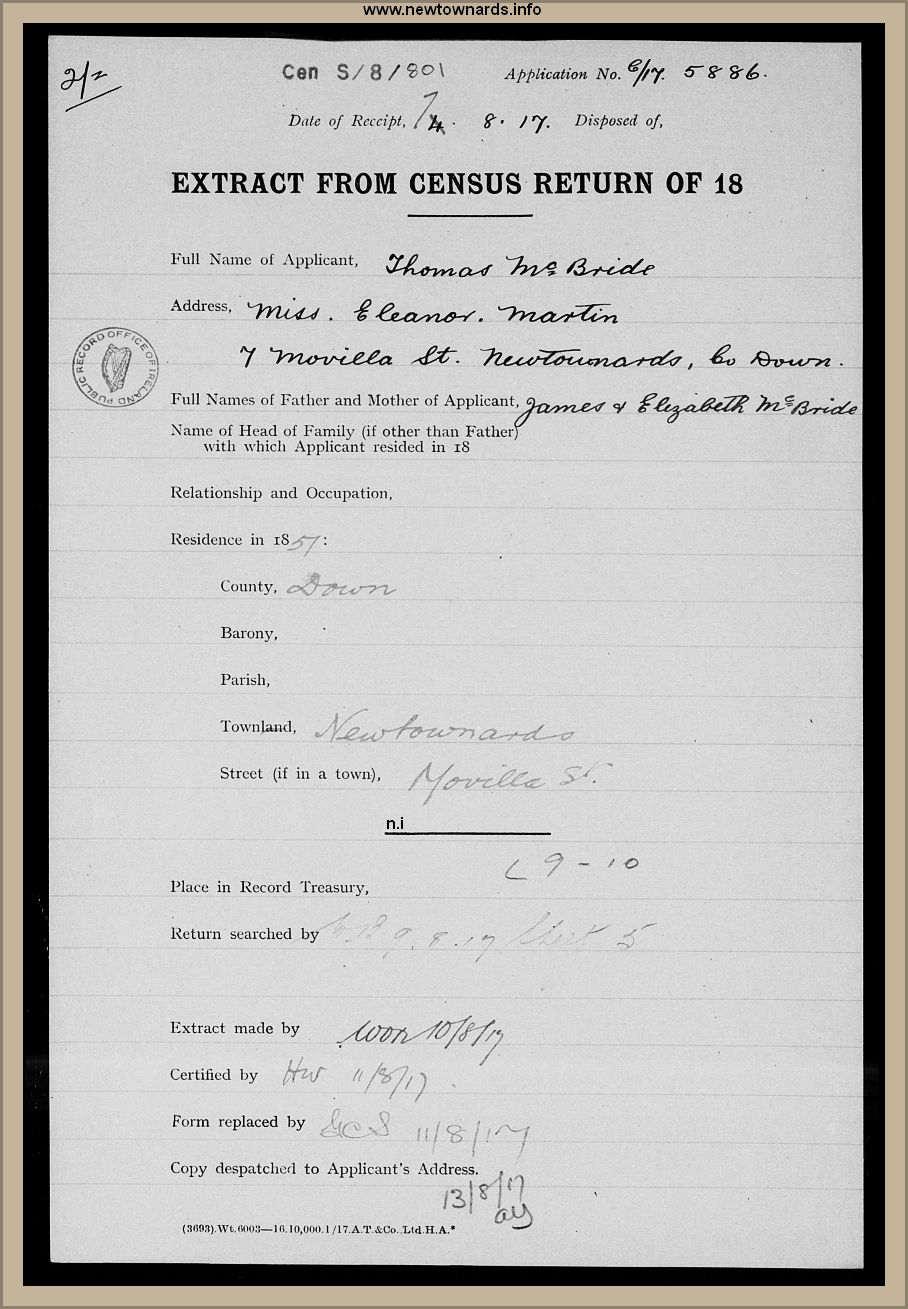 www.newtownards.info
2/2
Cen S/8/801 Application No. C/17. 5886.
Date of Receipt, 7/4. 8. 17. Disposed of,
EXTRACT FROM CENSUS RETURN OF 18
Full Name of Applicant, Thomas McBride
Address, Miss. Eleanor. Martin
7 Movilla St. Newtownards, Co Down.
PUBLIC RECORD OFFICE OF IRELAND
Full Names of Father and Mother of Applicant, James & Elizabeth McBride
Name of Head of Family (if other than Father)
with which Applicant resided in 18
Relationship and Occupation,
Residence in 1851:
County, Down
Barony,
Parish,
Townland, Newtownards
Street (if in a town), Movilla St.
n.i
L 9-10
Place in Record Treasury,
Return searched by 9.8.17 Sheet 5
Extract made by 10/8/17
Certified by HW 11/8/17.
Form replaced by GCS 11/8/17
Copy despatched to Applicant's Address.
13/8/17
(3693).Wt.6003—16.10,000.1/17.A.T.&Co.,Ltd.H.A.*